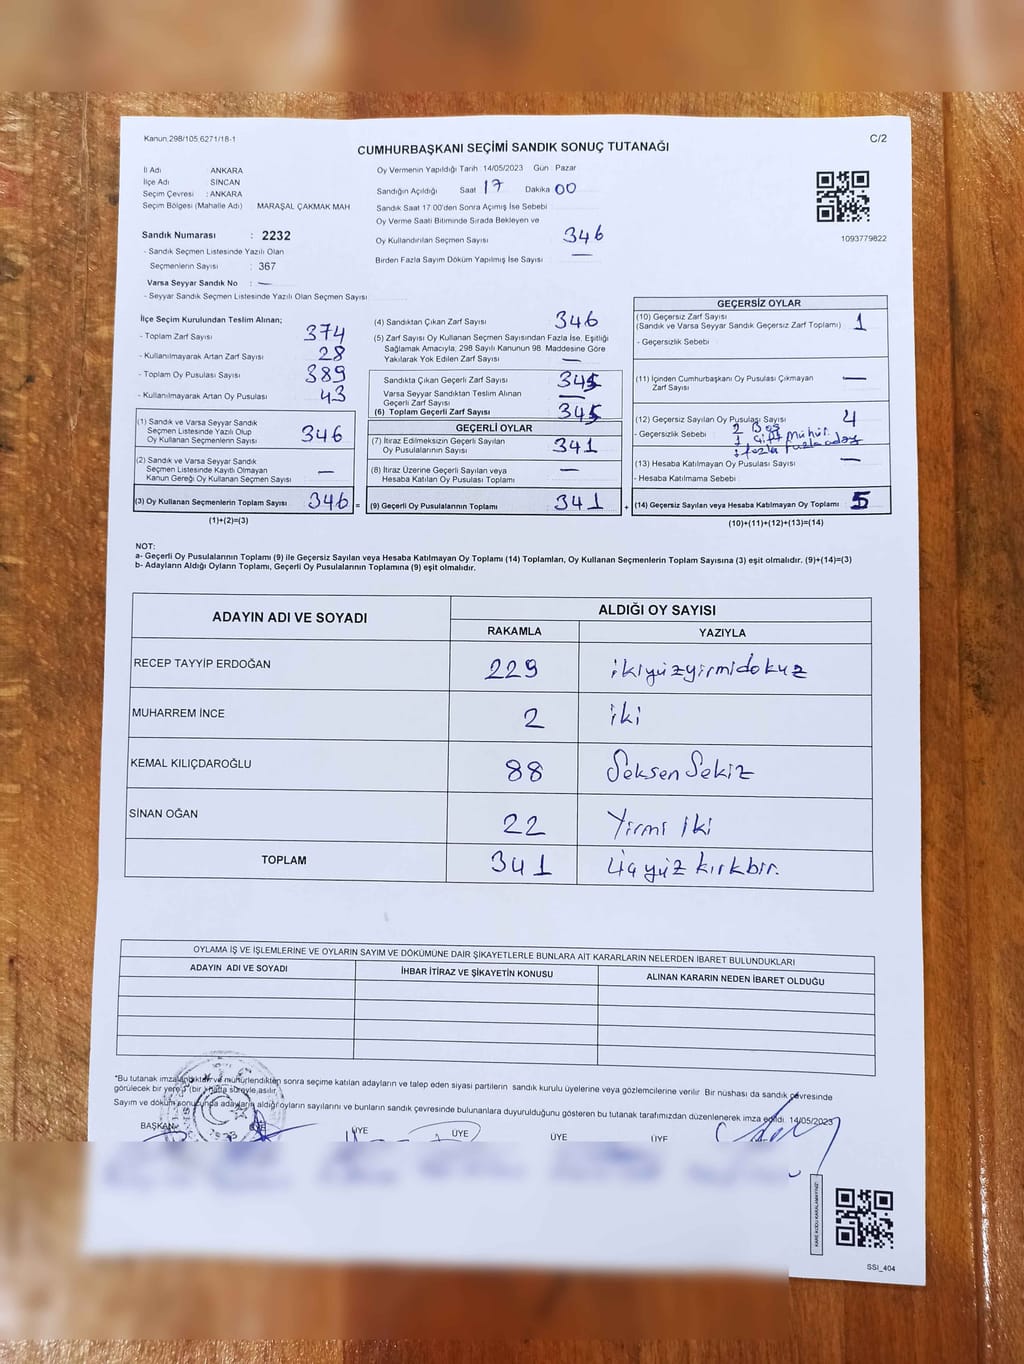 Kanun 298/105,6271/18-1
C/2
CUMHURBAŞKANI SEÇİMİ SANDIK SONUÇ TUTANAĞI
İl Adı ANKARA
İlçe Adı SİNCAN
Seçim Çevresi : ANKARA
Seçim Bölgesi (Mahalle Adı) MARAŞAL ÇAKMAK MAH
Sandık Numarası : 2232
- Sandık Seçmen Listesinde Yazılı Olan
Seçmenlerin Sayısı : 367
Varsa Seyyar Sandık No : —
- Seyyar Sandık Seçmen Listesinde Yazılı Olan Seçmen Sayısı
Oy Vermenin Yapıldığı Tarih 14/05/2023 Gün Pazar
Sandığın Açıldığı Saat 17 Dakika 00
Sandık Saat 17:00'den Sonra Açımış İse Sebebi
Oy Verme Saati Bitiminde Sırada Bekleyen ve
Oy Kullandırılan Seçmen Sayısı 346
Birden Fazla Sayım Döküm Yapılmış İse Sayısı —
1093779822
İlçe Seçim Kurulundan Teslim Alınan;
- Toplam Zarf Sayısı 374
- Kullanılmayarak Artan Zarf Sayısı 28
- Toplam Oy Pusulası Sayısı 389
- Kullanılmayarak Artan Oy Pusulası 43
(1) Sandık ve Varsa Seyyar Sandık
Seçmen Listesinde Yazılı Olup
Oy Kullanan Seçmenlerin Sayısı 346
(2) Sandık ve Varsa Seyyar Sandık
Seçmen Listesinde Kayıtlı Olmayan
Kanun Gereği Oy Kullanan Seçmen Sayısı —
(3) Oy Kullanan Seçmenlerin Toplam Sayısı 346 =
(1)+(2)=(3)
(4) Sandıktan Çıkan Zarf Sayısı 346
(5) Zarf Sayısı Oy Kullanan Seçmen Sayısından Fazla İse, Eşitliği
Sağlamak Amacıyla, 298 Sayılı Kanunun 98. Maddesine Göre
Yakılarak Yok Edilen Zarf Sayısı —
Sandıkta Çıkan Geçerli Zarf Sayısı 345
Varsa Seyyar Sandıktan Teslim Alınan
Geçerli Zarf Sayısı —
(6) Toplam Geçerli Zarf Sayısı 345
GEÇERLİ OYLAR
(7) İtiraz Edilmeksizin Geçerli Sayılan
Oy Pusulalarının Sayısı 341
(8) İtiraz Üzerine Geçerli Sayılan veya
Hesaba Katılan Oy Pusulası Toplamı —
(9) Geçerli Oy Pusulalarının Toplamı 341 +
GEÇERSİZ OYLAR
(10) Geçersiz Zarf Sayısı
(Sandık ve Varsa Seyyar Sandık Geçersiz Zarf Toplamı) 1
- Geçersizlik Sebebi
(11) İçinden Cumhurbaşkanı Oy Pusulası Çıkmayan —
Zarf Sayısı
(12) Geçersiz Sayılan Oy Pusulası Sayısı 4
- Geçersizlik Sebebi 2 Boş
1 Çift mühür
1 fazla
(13) Hesaba Katılmayan Oy Pusulası Sayısı —
- Hesaba Katılmama Sebebi
(14) Geçersiz Sayılan veya Hesaba Katılmayan Oy Toplamı 5
(10)+(11)+(12)+(13)=(14)
NOT:
a- Geçerli Oy Pusulalarının Toplamı (9) ile Geçersiz Sayılan veya Hesaba Katılmayan Oy Toplamı (14) Toplamları, Oy Kullanan Seçmenlerin Toplam Sayısına (3) eşit olmalıdır. (9)+(14)=(3)
b- Adayların Aldığı Oyların Toplamı, Geçerli Oy Pusulalarının Toplamına (9) eşit olmalıdır.
ADAYIN ADI VE SOYADI ALDIĞI OY SAYISI
RAKAMLA YAZIYLA
RECEP TAYYİP ERDOĞAN 229 ikiyüzyirmidokuz
MUHARREM İNCE 2 iki
KEMAL KILIÇDAROĞLU 88 Seksen Sekiz
SİNAN OĞAN 22 Yirmi iki
TOPLAM 341 Üçyüz kırkbir.
OYLAMA İŞ VE İŞLEMLERİNE VE OYLARIN SAYIM VE DÖKÜMÜNE DAİR ŞİKAYETLERLE BUNLARA AİT KARARLARIN NELERDEN İBARET BULUNDUKLARI
ADAYIN ADI VE SOYADI İHBAR İTİRAZ VE ŞİKAYETİN KONUSU ALINAN KARARIN NEDEN İBARET OLDUĞU
"Bu tutanak imzalandıktan ve mühürlendikten sonra seçime katılan adayların ve talep eden siyasi partilerin sandık kurulu üyelerine veya gözlemcilerine verilir. Bir nüshası da sandık çevresinde
görülecek bir yere 7 (bir) hafta süreyle asılır.
Sayım ve döküm sonucunda adayların aldığı oyların sayılarını ve bunların sandık çevresinde bulunanlara duyurulduğunu gösteren bu tutanak tarafımızdan düzenlenerek imza edildi. 14/05/2023
BAŞKAN ÜYE ÜYE ÜYE ÜYE ÜYE
1923
KARE KODU KARALAMAYINIZ!
SSİ_404